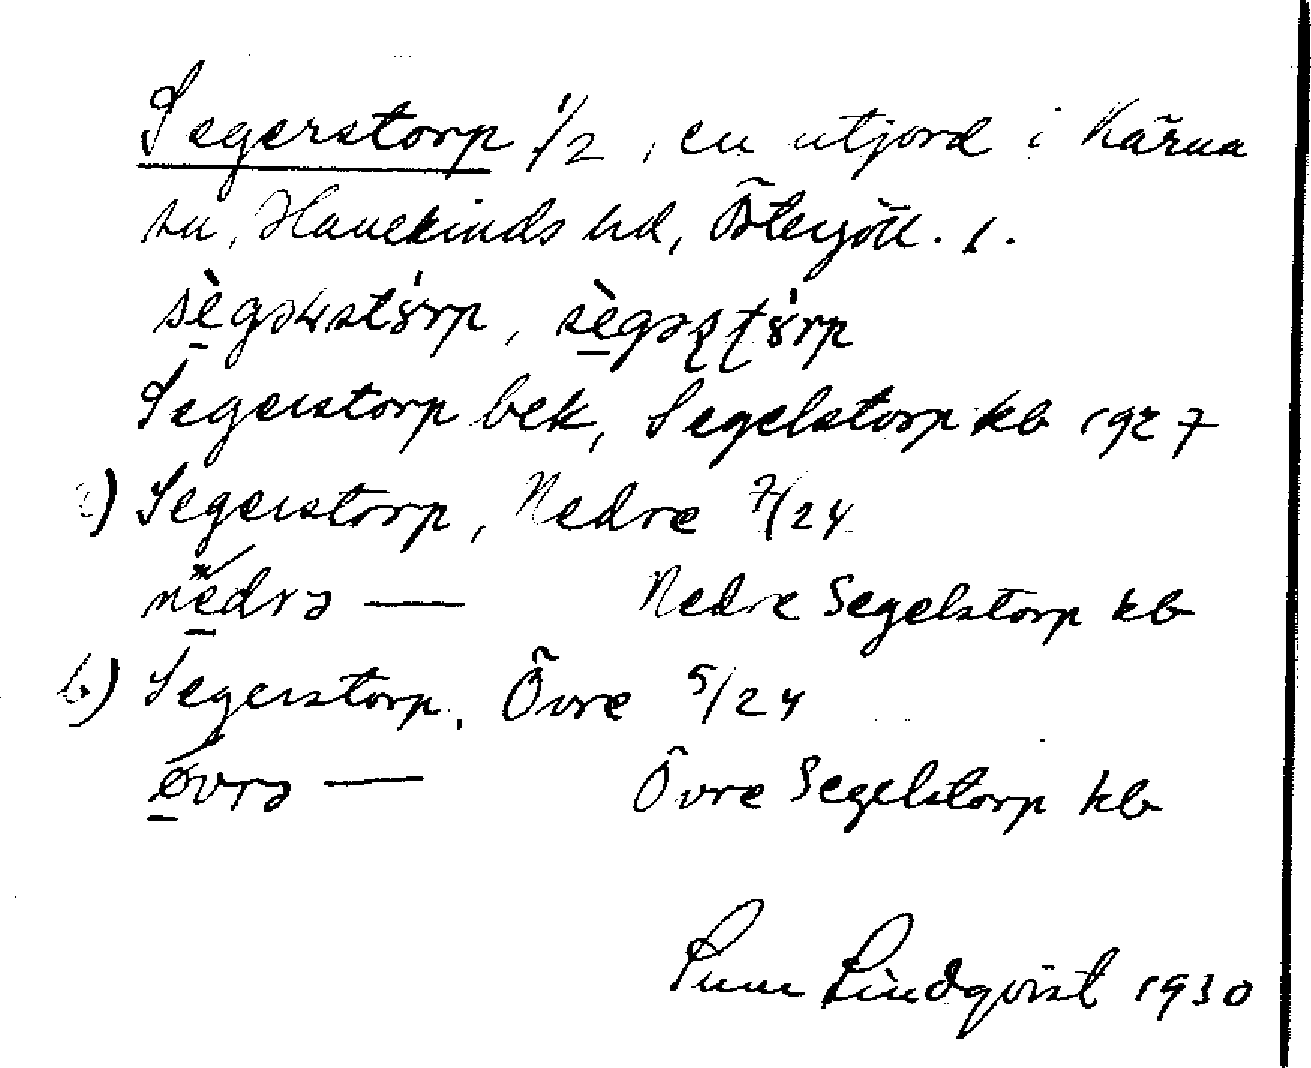 Segerstorp 1/2, en utjord i Kärna
sn, Hanekinds hd, Östergötl. l.
Segerstorp bek, Segelstorp kb 1927
a) Segerstorp, Nedre 7/24
nèdrə — Nedre Segelstorp kb
b) Segerstorp, Övre 5/24
øvrə — Övre Segelstorp kb
Sune Lindqvist 1930